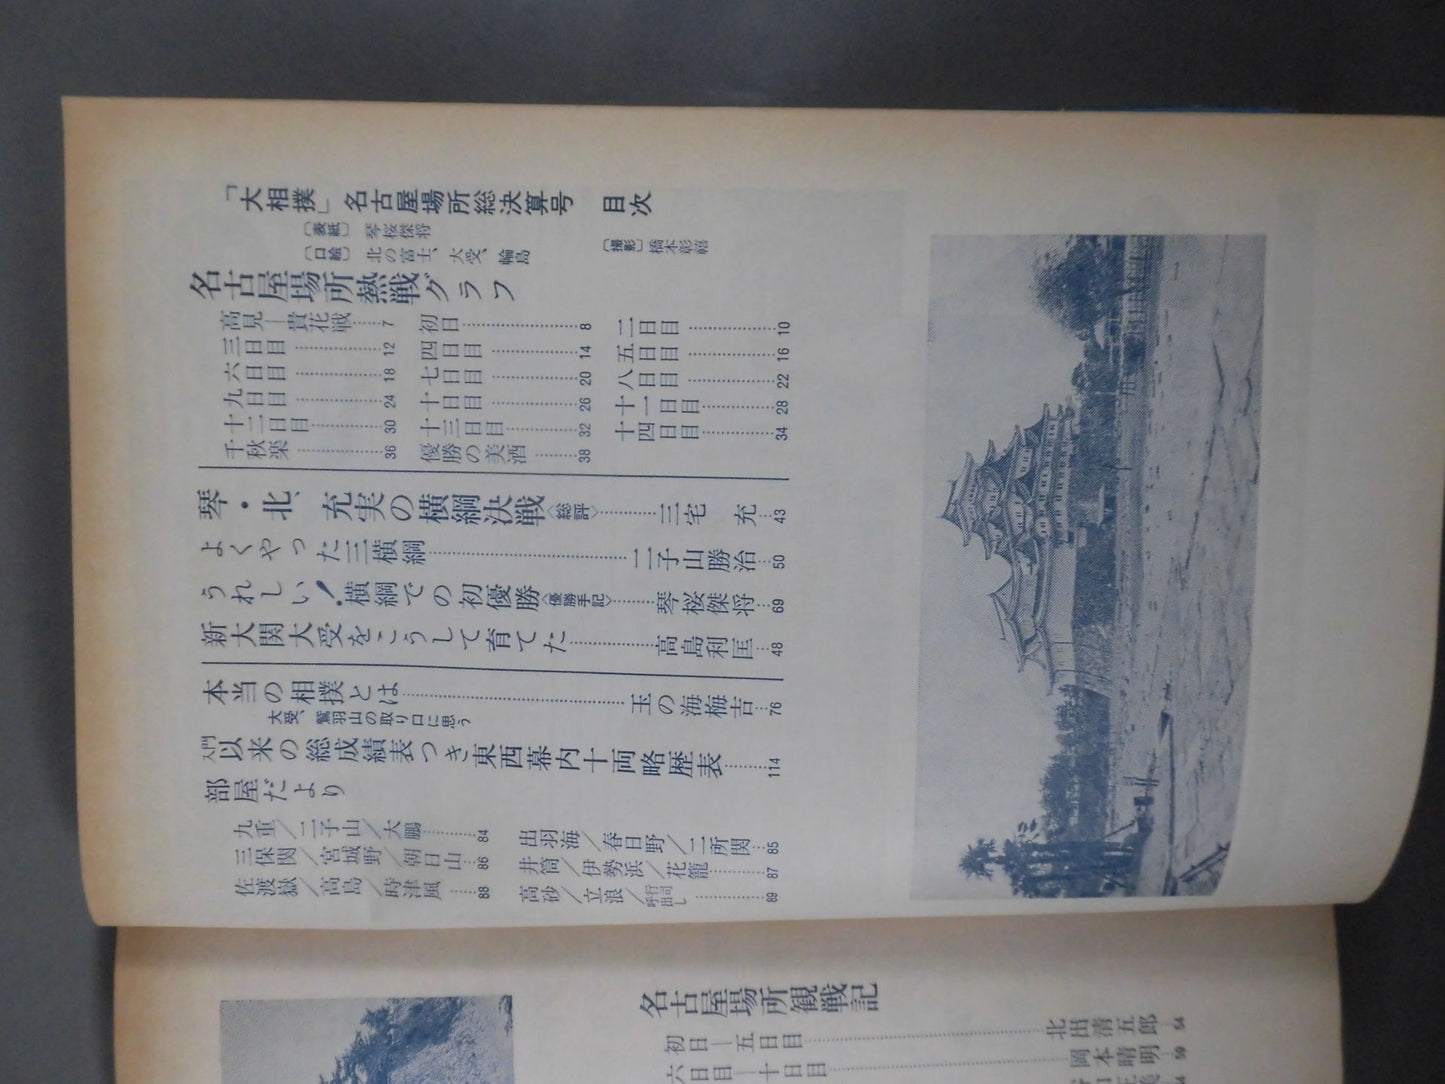 「大相撲」名古屋場所総決算号 目次
〔表紙〕 琴桜傑将
〔口絵〕 北の富士、大受、輪島
〔撮影〕 橋本彰禧
名古屋場所熱戦グラフ
高見―貴花戦……7 初日……8 二日目……10
三日目……12 四日目……14 五日目……16
六日目……18 七日目……20 八日目……22
九日目……24 十日目……26 十一日目……28
十二日目……30 十三日目……32 十四日目……34
千秋楽……36 優勝の美酒……38
琴・北、充実の横綱決戦〈総評〉……三宅 充…43
よくやった三横綱……二子山勝治…50
うれしい!横綱での初優勝〈優勝手記〉……琴桜傑将…69
新大関大受をこうして育てた……高島利匡…48
本当の相撲とは……玉の海梅吉…76
大受、鷲羽山の取り口に思う
入門以来の総成績表つき東西幕内十両略歴表……114
部屋だより
九重/二子山/大鵬……84 出羽海/春日野/二所関…85
三保関/宮城野/朝日山…86 井筒/伊勢浜/花籠……87
佐渡嶽/高島/時津風…88 高砂/立浪/行司 呼出し……89
名古屋場所観戦記
初日―五日目……北出清五郎…54
六日目―十日目……岡本晴明